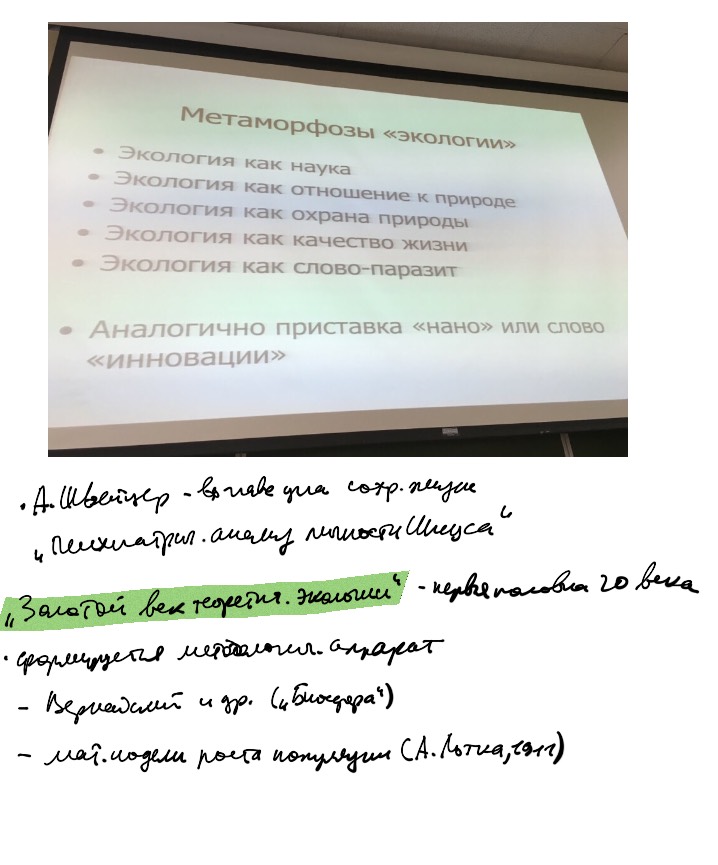 Метаморфозы «экологии»
• Экология как наука
• Экология как отношение к природе
• Экология как охрана природы
• Экология как качество жизни
• Экология как слово-паразит
• Аналогично приставка «нано» или слово
«инновации»
• А. Швейцер - во главе угла сохр. жизни
„Психиатрич. анализ личности Иисуса"
„Золотой век теоретич. экологии" - первая половина 20 века
• формируется методологич. аппарат
- Вернадский и др. („Биосфера")
- мат. модели роста популяции (А. Лотка, 1911)